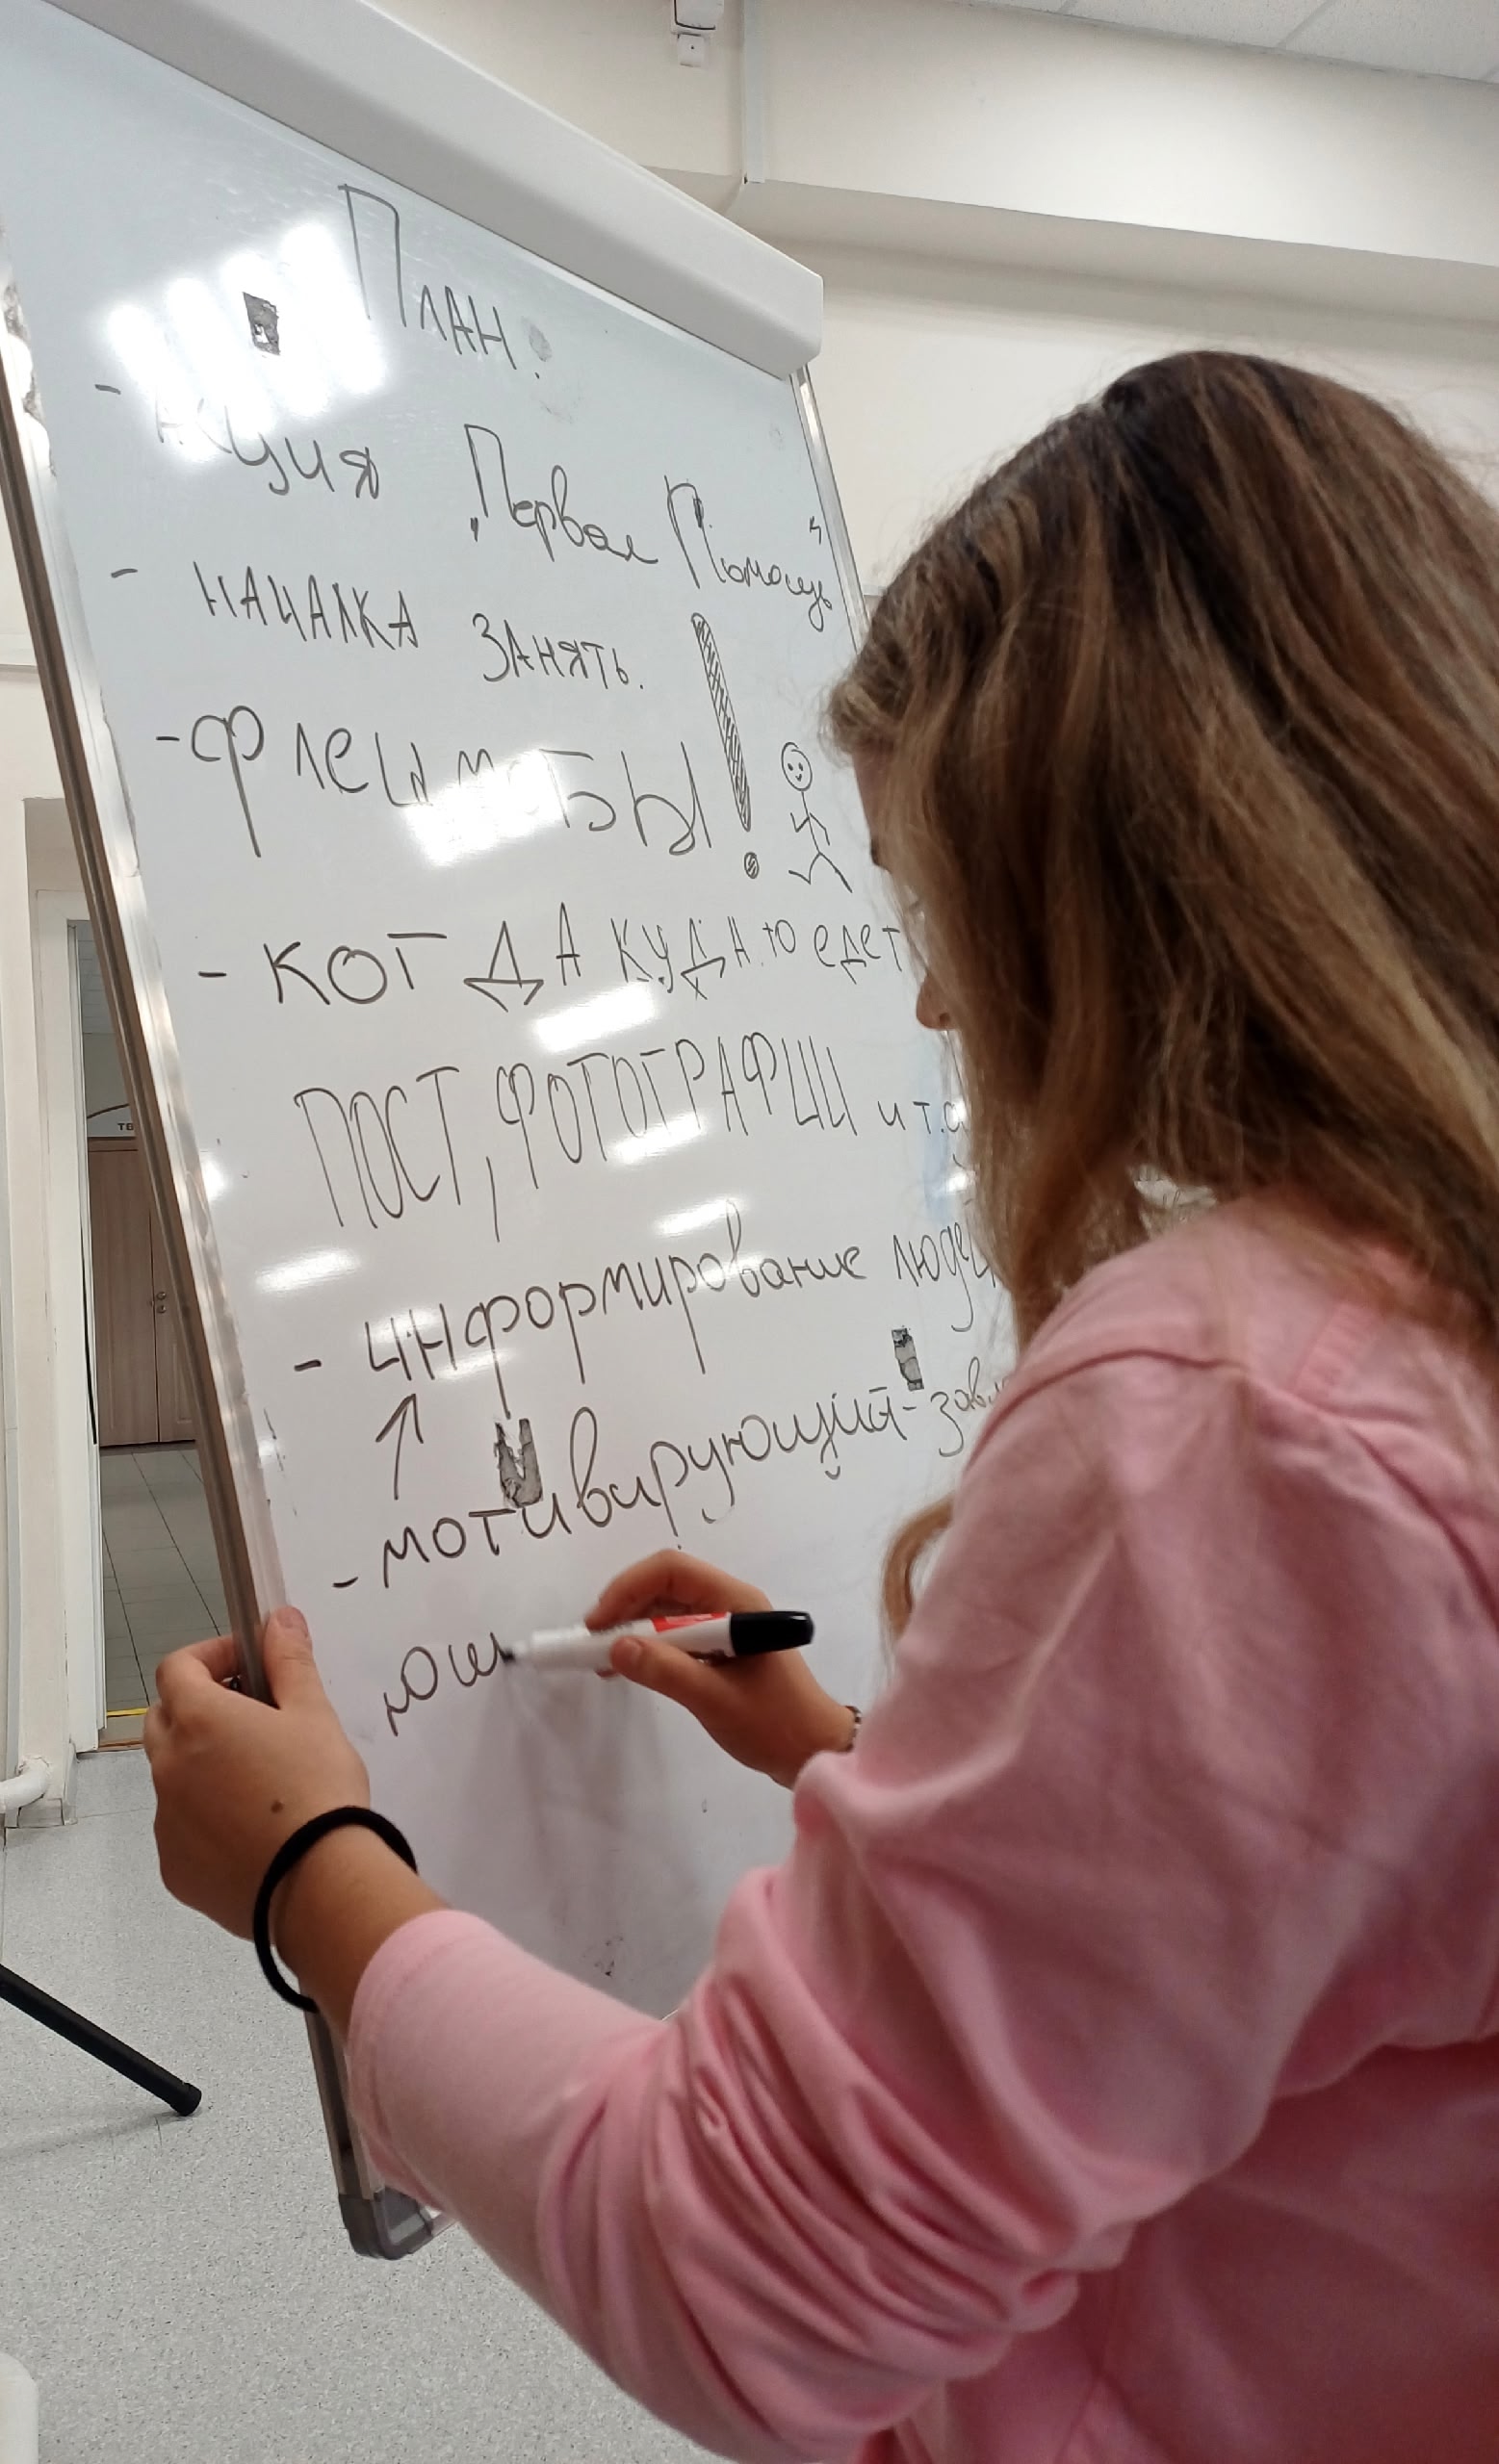 План:
- Акция „Первая Помощь"
- началка занять.
- флешмобы!
- когда куда-то едет
пост, фотографии и т.д
- информирование людей
- мотивирующий-
ющи